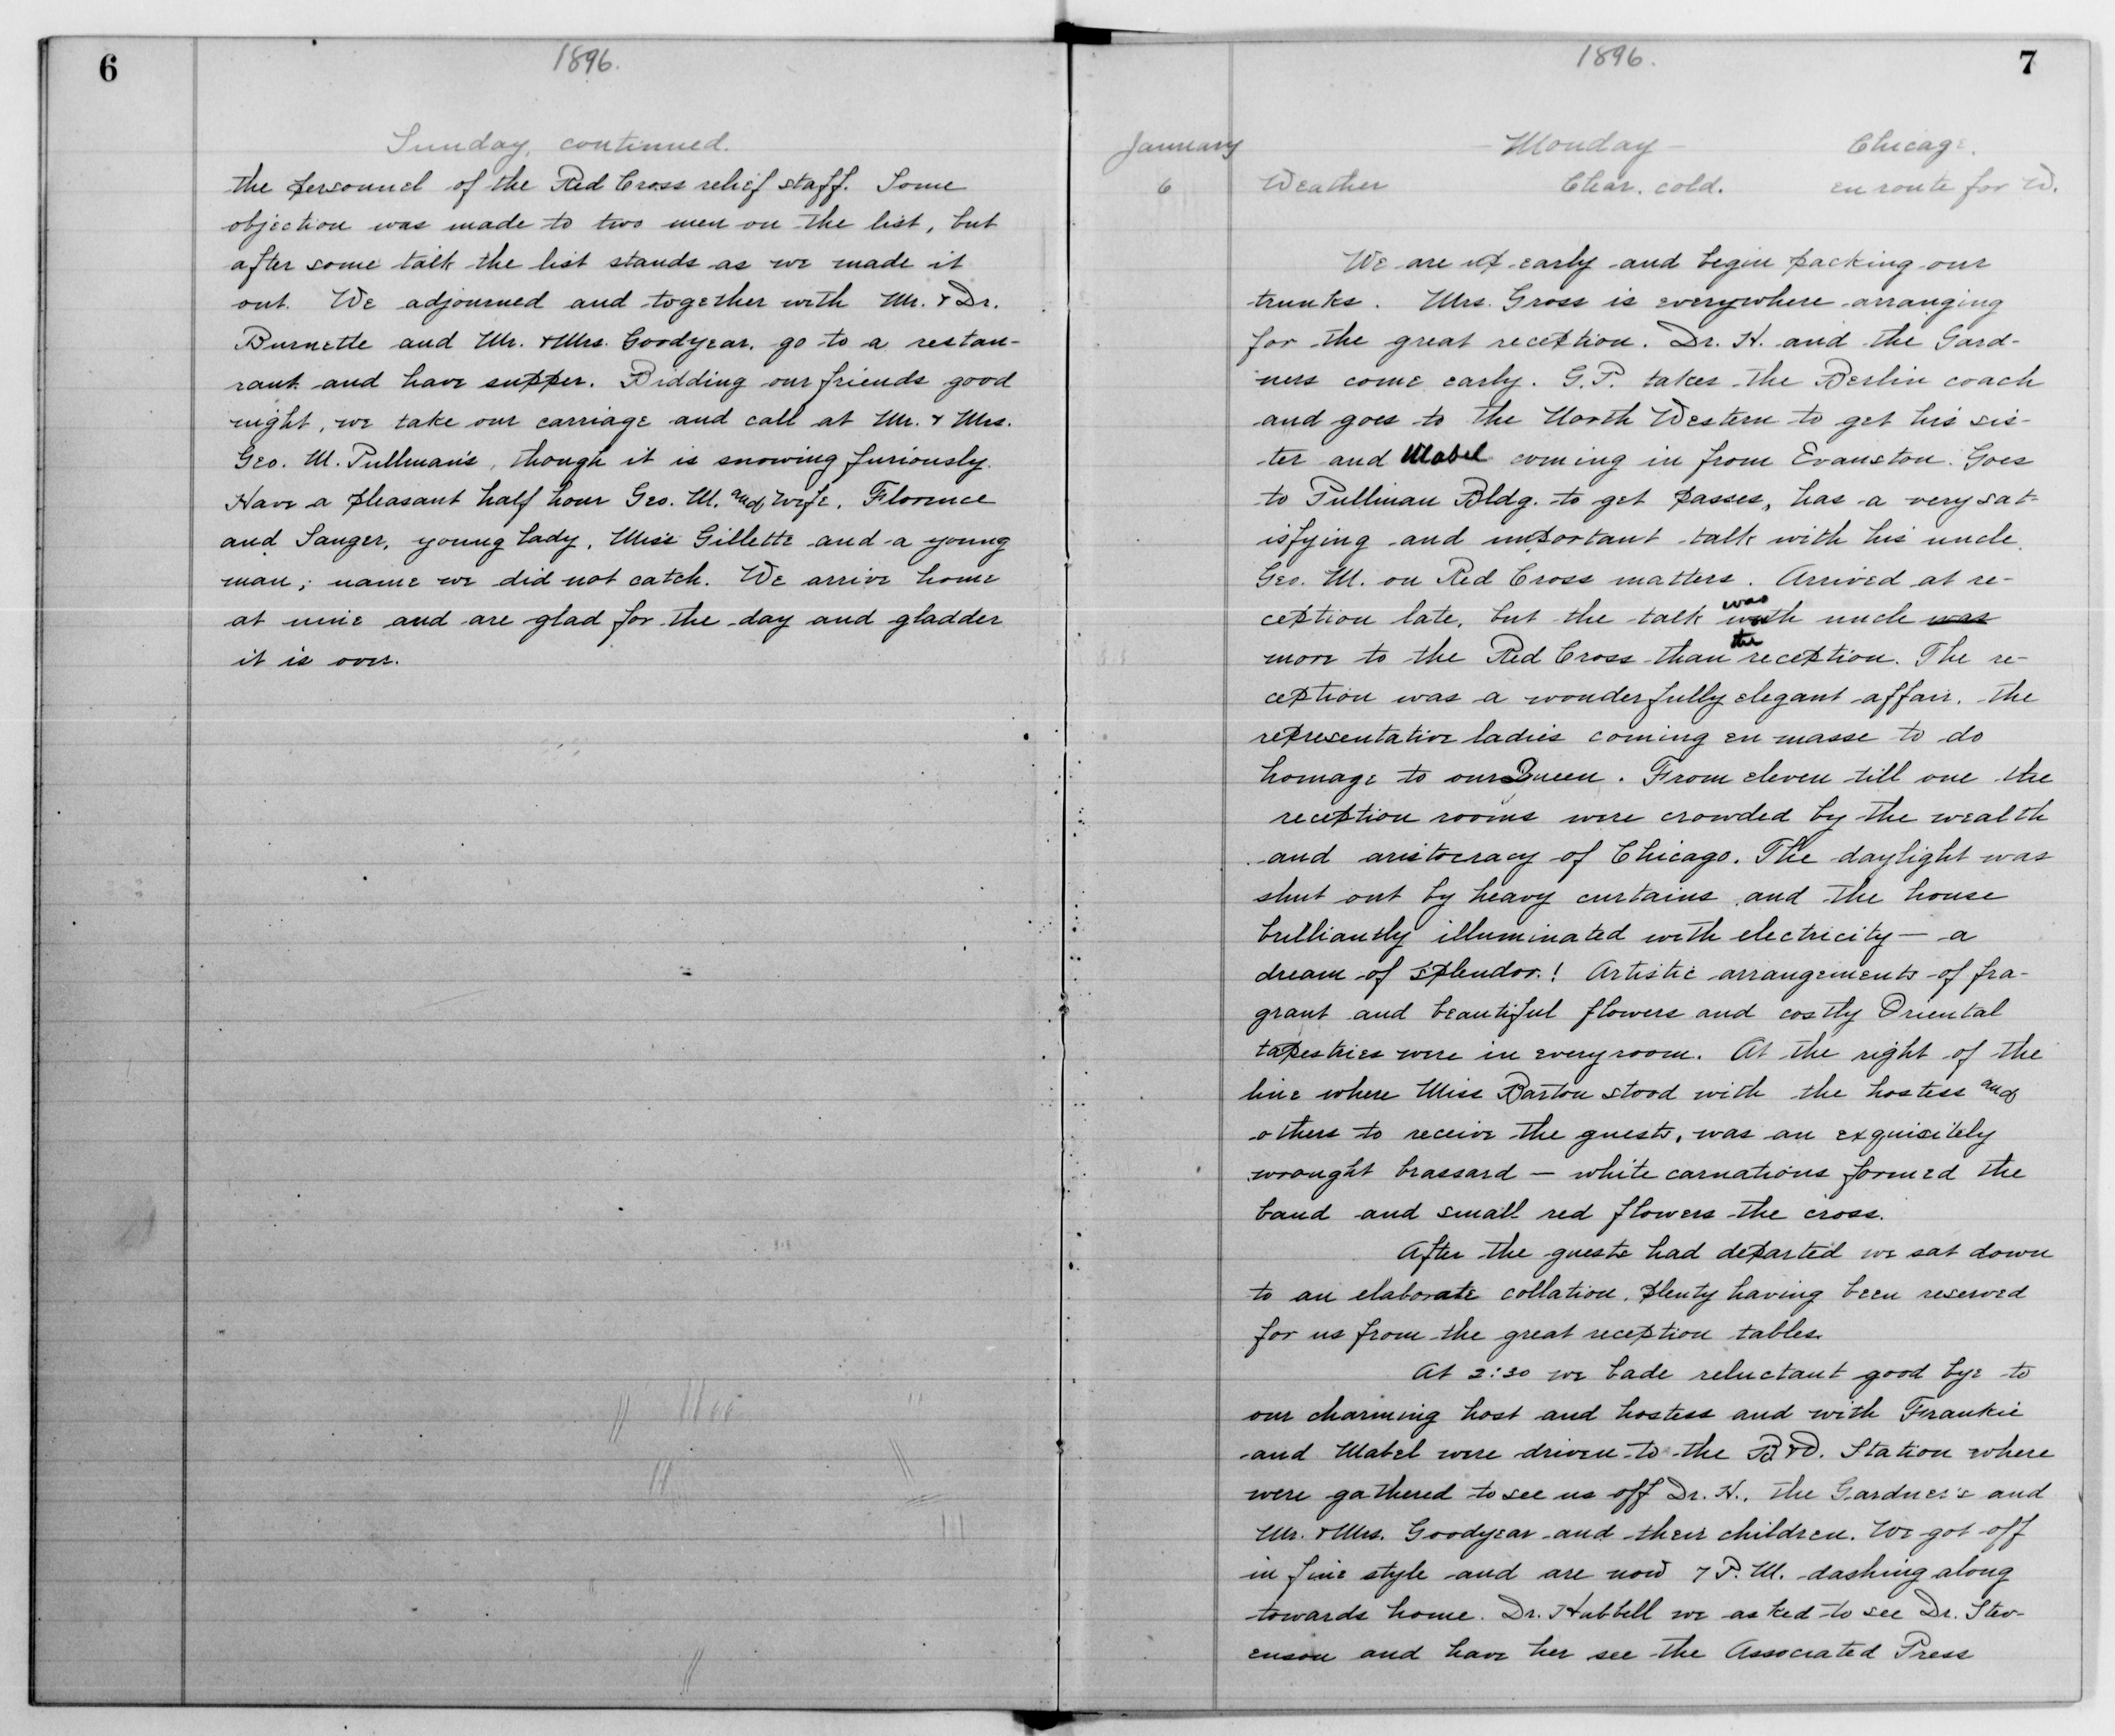 6
1896.
Sunday, continued.
the personnel of the Red Cross relief staff. Some
objection was made to two men on the list, but
after some talk the list stands as we made it
out. We adjourned and together with Mr. & Dr.
Burnette and Mr. & Mrs. Goodyear, go to a restau-
rant and have supper. Bidding our friends good
night, we take our carriage and call at Mr. & Mrs.
Geo. M. Pullman's, though it is snowing furiously.
Have a pleasant half hour Geo. M. and wife, Florence
and Sanger, young lady, Miss Gillette and a young
man; name we did not catch. We arrive home
at nine and are glad for the day and gladder
it is over.
1896.
7
January - Monday - Chicago.
6 Weather Clear. cold. en route for W.
We are up early and begin packing our
trunks. Mrs. Gross is everywhere arranging
for the great reception. Dr. H. and the Gard-
ners come early. G.P. takes the Berlin coach
and goes to the North Western to get his sis-
ter and Mabel coming in from Evanston. Goes
to Pullman Bldg. to get passes, has a very sat-
isfying and important talk with his uncle
Geo. M. on Red Cross matters. Arrived at re-
ception late, but the talk with uncle was
more to the Red Cross than the reception. The re-
ception was a wonderfully elegant affair, the
representative ladies coming en masse to do
homage to our Queen. From eleven till one the
reception rooms were crowded by the wealth
and aristocracy of Chicago. The daylight was
shut out by heavy curtains and the house
brilliantly illuminated with electricity — a
dream of splendor! Artistic arrangements of fra-
grant and beautiful flowers and costly Oriental
tapestries were in every room. At the right of the
line where Miss Barton stood with the hostess and
others to receive the guests, was an exquisitely
wrought brassard — white carnations formed the
band and small red flowers the cross.
After the guests had departed we sat down
to an elaborate collation, plenty having been reserved
for us from the great reception tables.
At 2:30 we bade reluctant good bye to
our charming host and hostess and with Frankie
and Mabel were driven to the B & O. Station where
were gathered to see us off Dr. H., the Gardner's and
Mr. & Mrs. Goodyear and their children. We got off
in fine style and are now 7 P.M. dashing along
towards home. Dr. Hubbell we asked to see Dr. Stev-
enson and have her see the Associated Press